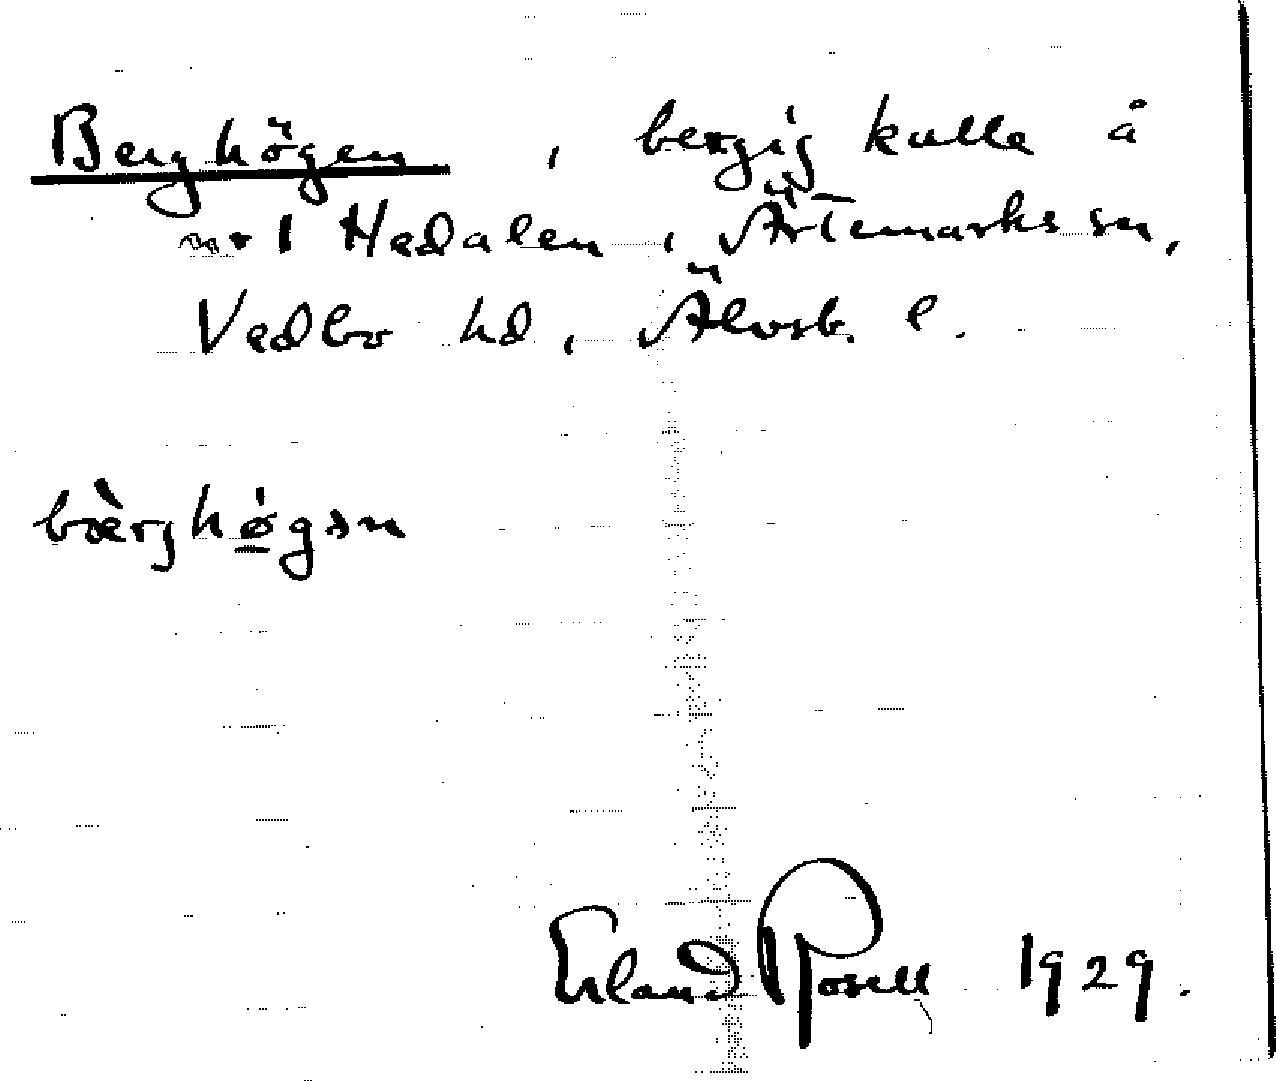 Berghögen, bergig kulle å
nr 1 Hedalen, Ärtemarks sn,
Vedbo hd, Älvsb. l.
bæ̀rjhǿ̲gən
Erland Rosell 1929.